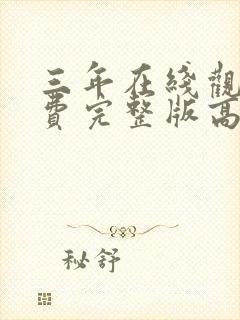 三年在綫觀
費完整版高
秘舒